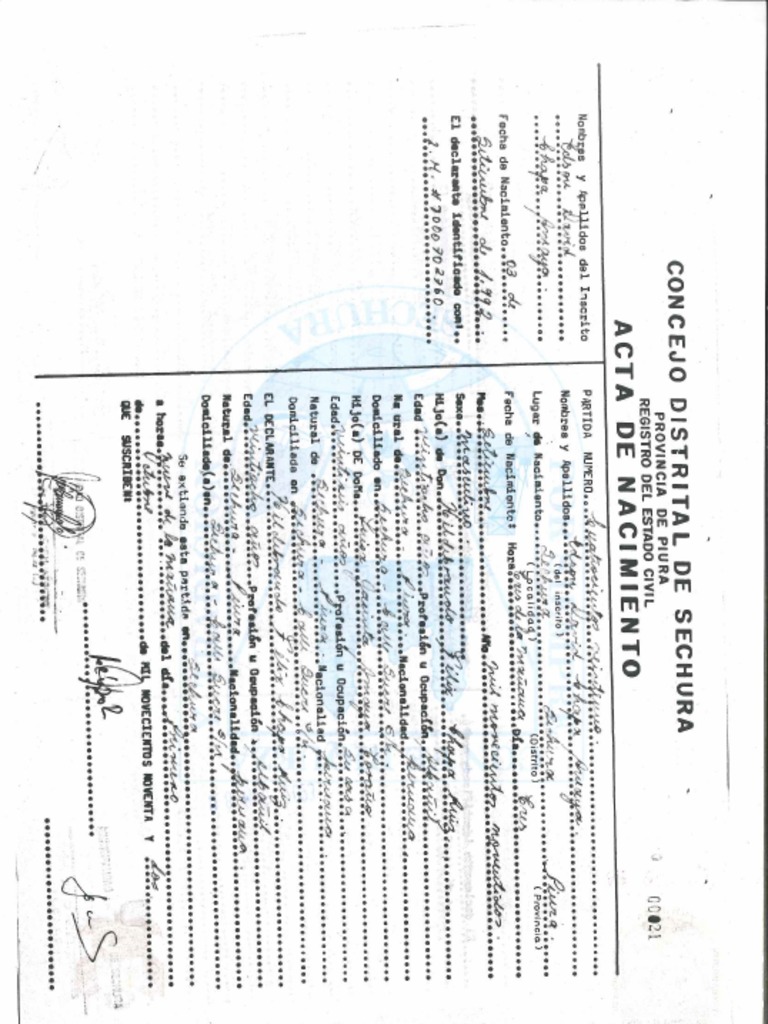 CONCEJO DISTRITAL DE SECHURA
PROVINCIA DE PIURA
REGISTRO DEL ESTADO CIVIL
ACTA DE NACIMIENTO
00021
Nombres y Apellidos del Inscrito
Edson David
Chapa
Fecha de Nacimiento 03 de
Setiembre de 1,992
El declarante identificado con:
L.M. # 7000702760
PARTIDA NUMERO Cuatrocientos veintiuno.
Nombres y Apellidos Edson David Chapa
(del inscrito)
Lugar de Nacimiento Sechura Sechura Piura
(Localidad) (Distrito) (Provincia)
Fecha de Nacimiento: Hora Tres de la mañana Día Tres
Mes Setiembre Año mil novecientos noventidos.
Sexo Masculino
Hijo(a) de Don Hildebrando Félix Chapa Ruiz
Edad veintiocho años Profesión u Ocupación albañil
Natural de Sechura - Piura Nacionalidad peruana
Domiciliado en Sechura - Calle Sucre S/n.
Hijo(a) DE Doña
Edad años Profesión u Ocupación Su casa
Natural de Sechura - Piura Nacionalidad peruana
Domiciliada en Sechura - Calle Sucre S/n.
EL DECLARANTE Hildebrando Félix Chapa Ruiz
Edad Veintiocho años Profesión u Ocupación albañil
Natural de Sechura - Piura Nacionalidad peruana
Domiciliado(a) en Sechura - Calle Sucre S/n
Se extiende esta partida en Sechura
a horas nueve de la mañana del día Primero
de Octubre de MIL NOVECIENTOS NOVENTA Y dos
QUE SUSCRIBEN:
SECHURA